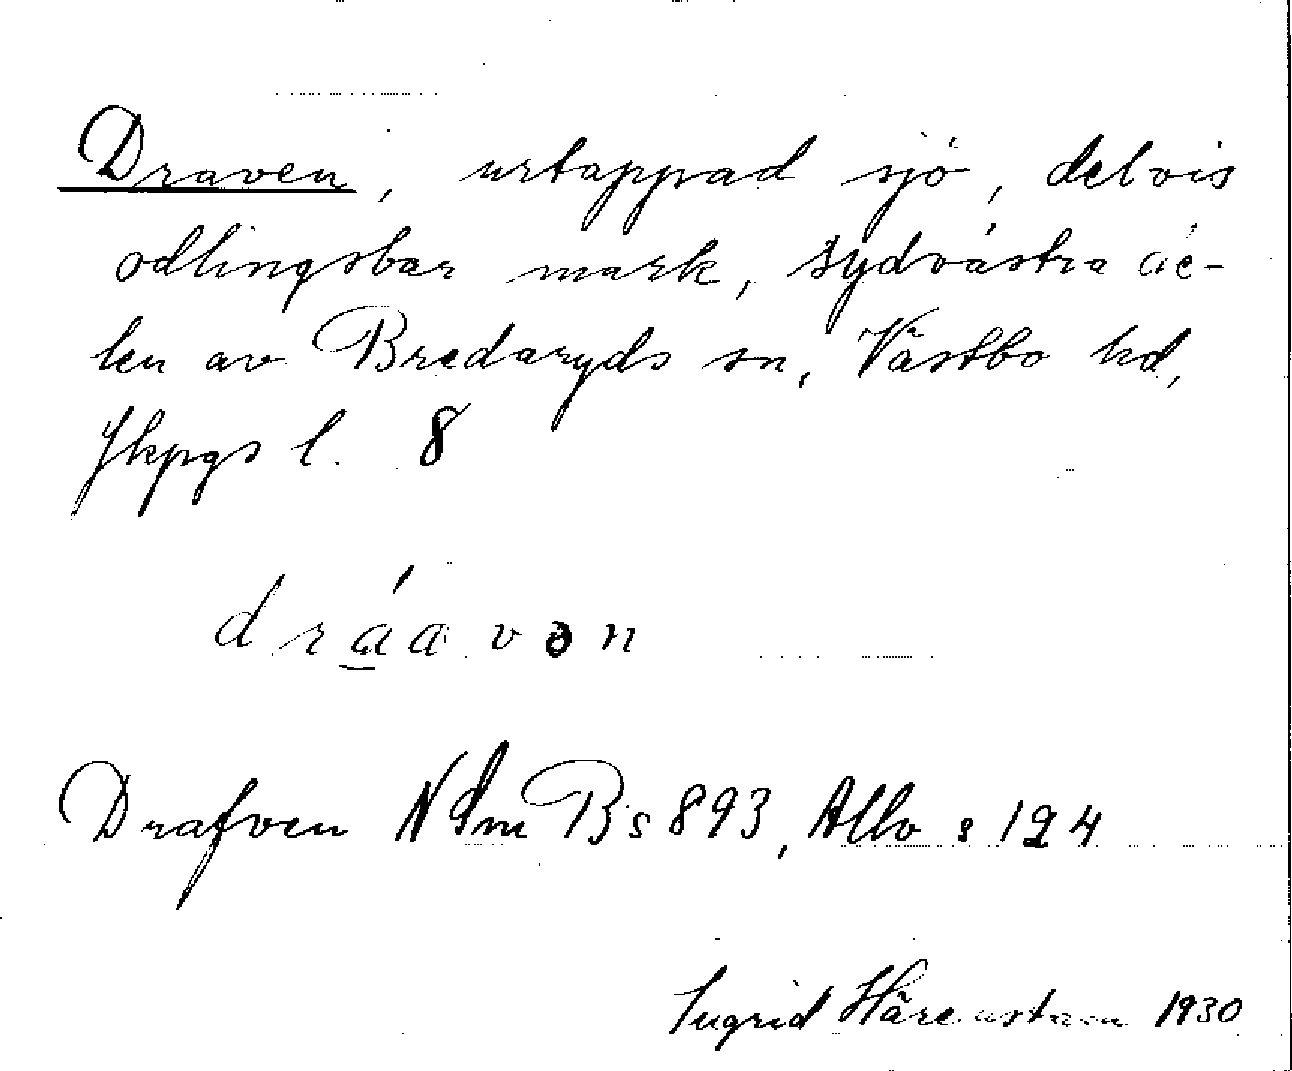 Draven, urtappad sjö, delvis
odlingsbar mark, sydvästra de-
len av Bredaryds sn, Västbo hd,
Jkpgs l. 8
dráavən
Drafven NSm Bs 893, Allvo s 124
Ingrid Hårenstam 1930